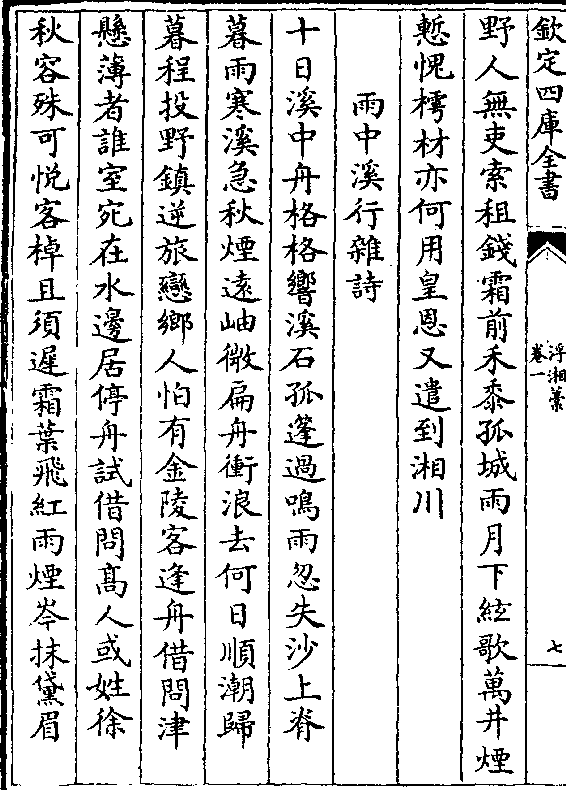 欽定四庫全書
浮湘藁
卷一
七
野人無吏索租錢霜前禾黍孤城雨月下絃歌萬井煙
慙愧樗材亦何用皇恩又遣到湘川
雨中溪行雜詩
十日溪中舟格格響溪石孤篷過鳴雨忽失沙上脊
暮雨寒溪急秋煙遠岫微扁舟衝浪去何日順潮歸
暮程投野鎮逆旅戀鄉人怕有金陵客逢舟借問津
懸薄者誰室宛在水邊居停舟試借問髙人或姓徐
秋容殊可悦客棹且須遲霜葉飛紅雨煙岑抹黛眉